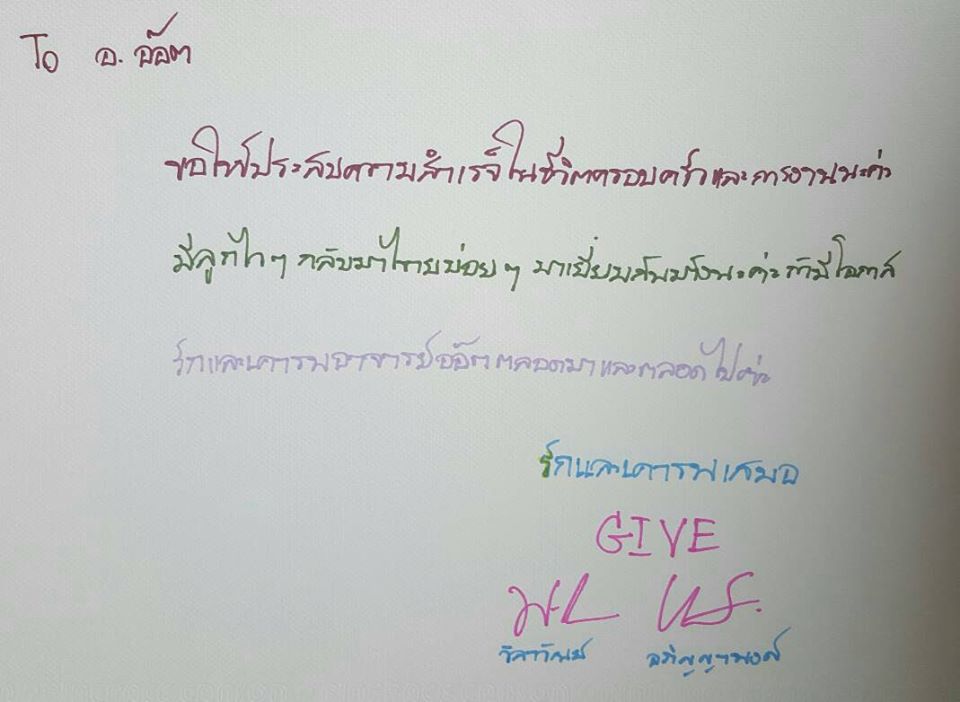 To อ. อ๊อต
ขอให้ประสบความสำเร็จในชีวิตครอบครัวและการงานนะคะ
มีลูกไวๆ กลับมาไทยบ่อยๆ มาเยี่ยมกันบ้างนะคะถ้ามีโอกาส
รักและเคารพอาจารย์อ๊อตตลอดมาและตลอดไปค่ะ
รักและเคารพเสมอ
GIVE